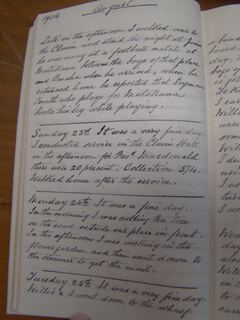 1914 August
Late in the afternoon I walked over to
the Claim and stayed the night at
he was away at a football match at
Matakana between the boys of that place
and Omaha when he arrived, when he
returned home he reported that Seymour
Smith who plays for Matakana
broke his leg while playing.
Sunday 23rd It was a very fine day.
I conducted service in the Claim Hall
in the afternoon for Revd Macdonald
there were 20 present. Collection 5/4.
Walked home after the service.
Monday 24th It was a fine day.
In the morning I was cutting tea tree
on the road outside our place in front.
In the afternoon I was working in the
flower garden and then went down to
the steamer to get the mail.
Tuesday 25th It was a very fine day
Willie & I went down to the wharf